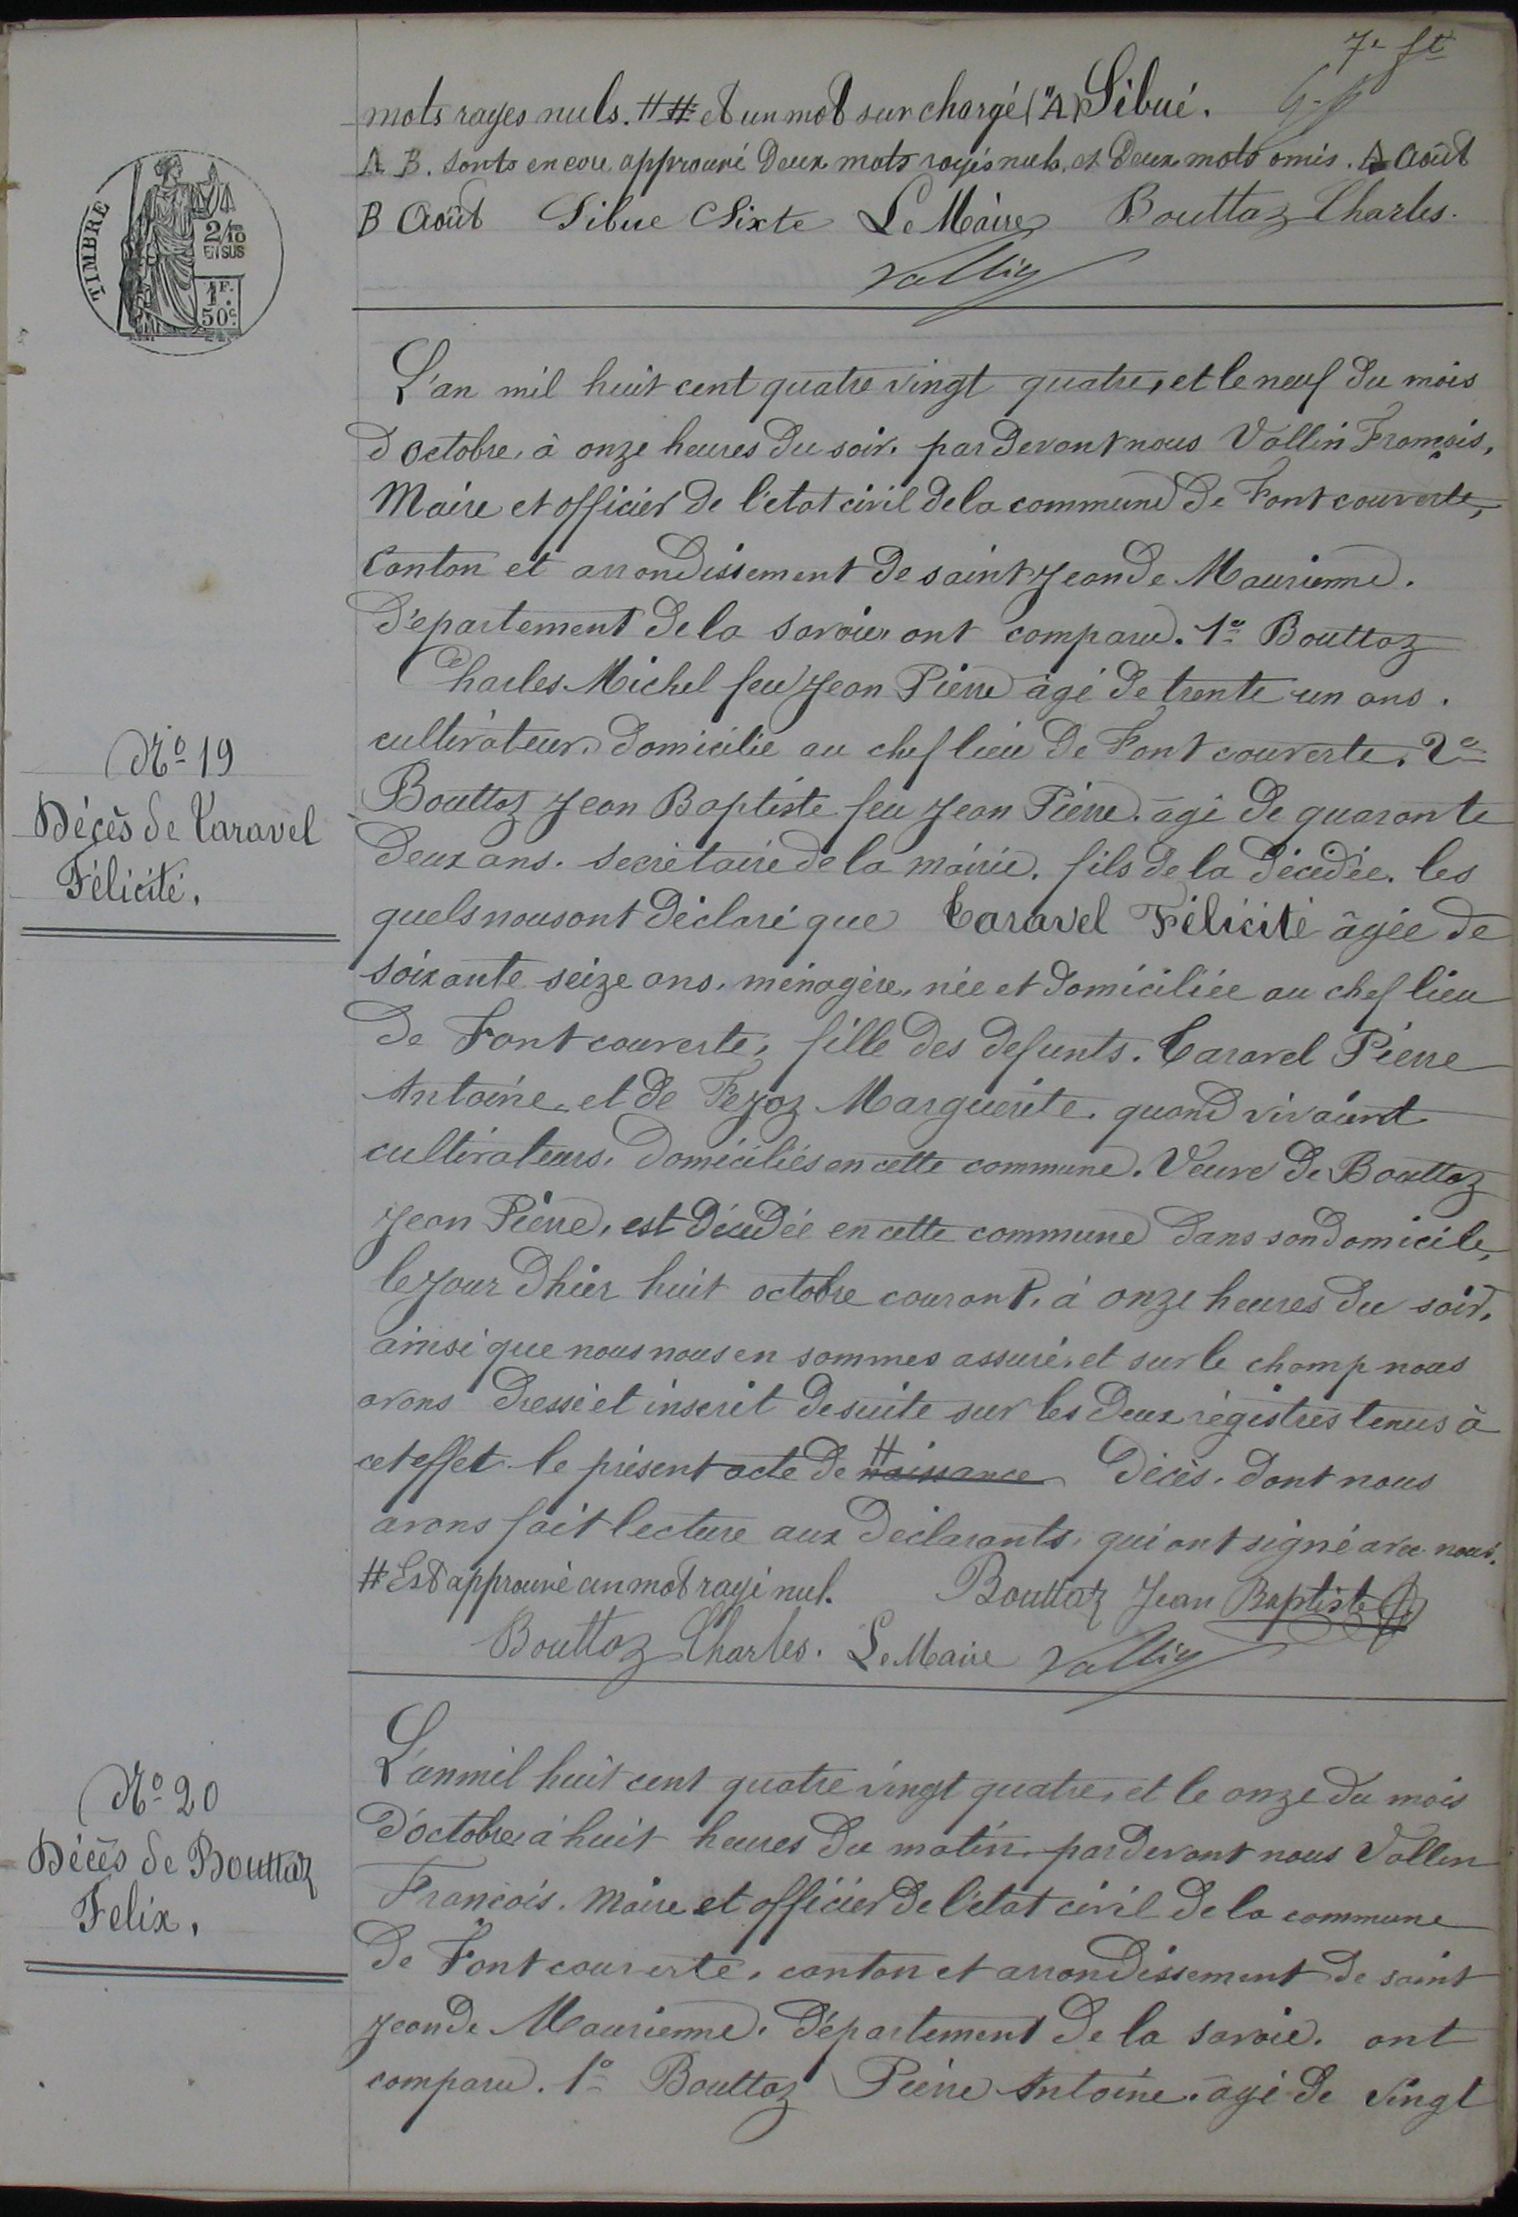 7e ft
mots rayes nuls. ## et un mot sur chargé ("A) Sibué.
A B. sonts encore approuvé Deux mots rayés nuls, et Deux mots omis. A Août
B Août Sibue Sixte Le Maire Bouttaz Charles.
Vallin
TIMBRE
2/10
EN SUS
1F.
50c.
L'an mil huit cent quatre vingt quatre, et le neuf du mois
d octobre, à onze heures du soir. par devant nous Vallin François,
Maire et officier de l'état civil de la commune de Fontcouverte,
Canton et arrondissement de saint Jean de Maurienne.
Département de la savoie, ont comparu. 1º Bouttaz
Charles Michel feu Jean Pierre âgé de trente un ans.
cultivateur, domicilié au chef lieu de Fontcouverte. 2º
Bouttaz Jean Baptiste feu Jean Pierre. âgé de quarante
deux ans. secrétaire de la mairie. fils de la décédée. les
quels nous ont déclaré que Caravel Félicité âgée de
soixante seize ans, ménagère, née et domiciliée au chef lieu
de Fontcouverte, fille des defunts. Caravel Pierre
Antoine et de Fejoz Marguerite. quand vivaient
cultivateurs, domiciliés en cette commune. Veuve de Bouttaz
Jean Pierre, est décédée en cette commune dans son domicile,
le jour d'hier huit octobre courant, à onze heures du soir,
ainsi que nous nous en sommes assuré, et sur le champ nous
avons dressé et inscrit de suite sur les deux régistres tenus à
cet effet le présent acte de # naissance Décès. dont nous
avons fait lecture aux déclarants, qui ont signé avec nous.
# Est approuvé un mot rayé nul. Bouttaz Jean Baptiste
Bouttaz Charles. Le Maire Vallin
Nº 19
Décès de Caravel
Félicité.
L'an mil huit cent quatre vingt quatre, et le onze du mois
d'octobre à huit heures du matin, par devant nous Vallin
François. Maire et officier de l'état civil de la commune
de Fontcouverte, canton et arrondissement de saint
Jean de Maurienne. Département de la savoie. ont
comparu. 1º Bouttaz Pierre Antoine. âgé de vingt
Nº 20
Décès de Bouttaz
Felix.